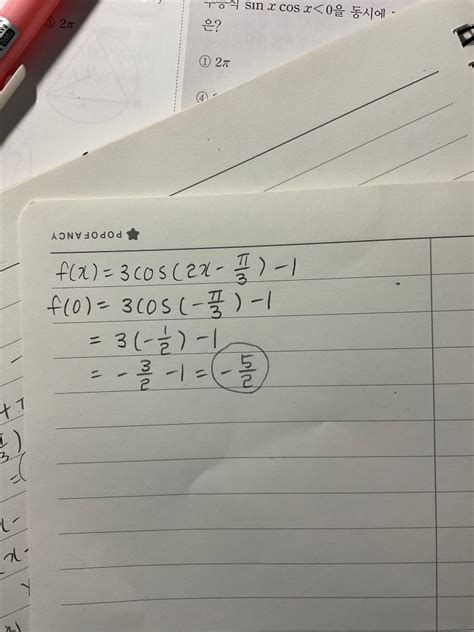 ③ 2π
sin x cos x<0을 동시에
은?
① 2π
④
POPOFANCY
f(x) = 3cos(2x - π/3) - 1
f(0) = 3cos(-π/3) - 1
= 3(-1/2) - 1
= -3/2 - 1 = -5/2